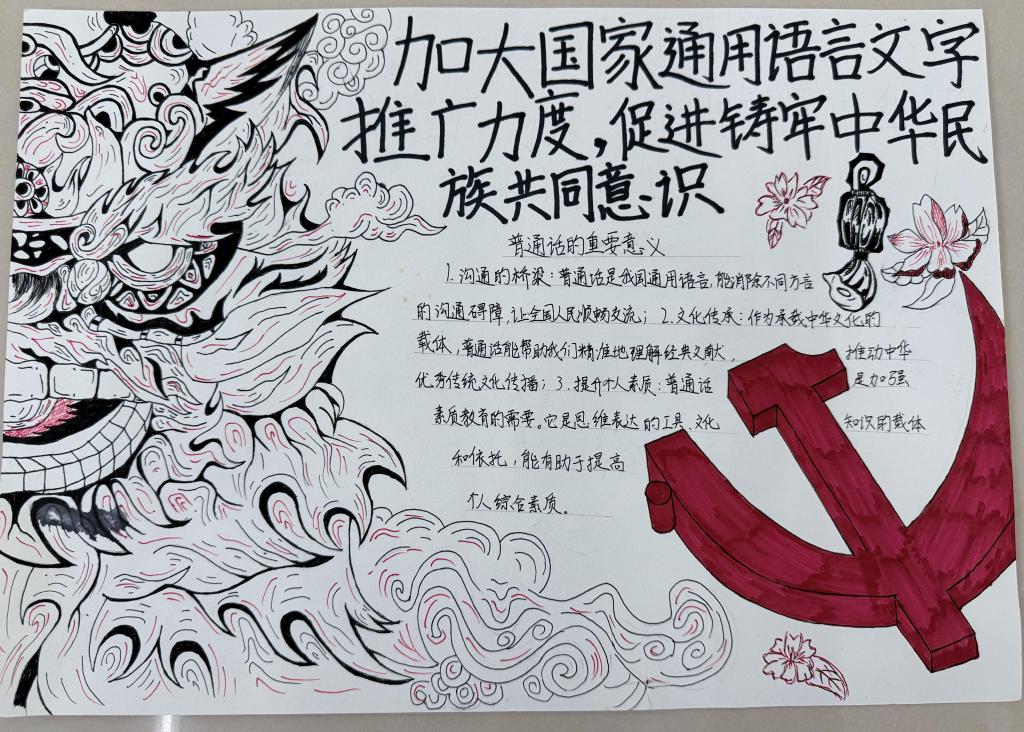 加大国家通用语言文字
推广力度，促进铸牢中华民
族共同意识
普通话的重要意义
1.沟通的桥梁：普通话是我国通用语言，能消除不同方言
的沟通碍障，让全国人民顺畅交流；2.文化传承：作为承载中华文化的
载体，普通话能帮助我们精准地理解经典文献，推动中华
优秀传统文化传播；3.提升个人素质：普通话是加强
素质教育的需要。它是思维表达的工具、文化知识的载体
和依托，能有助于提高
个人综合素质。